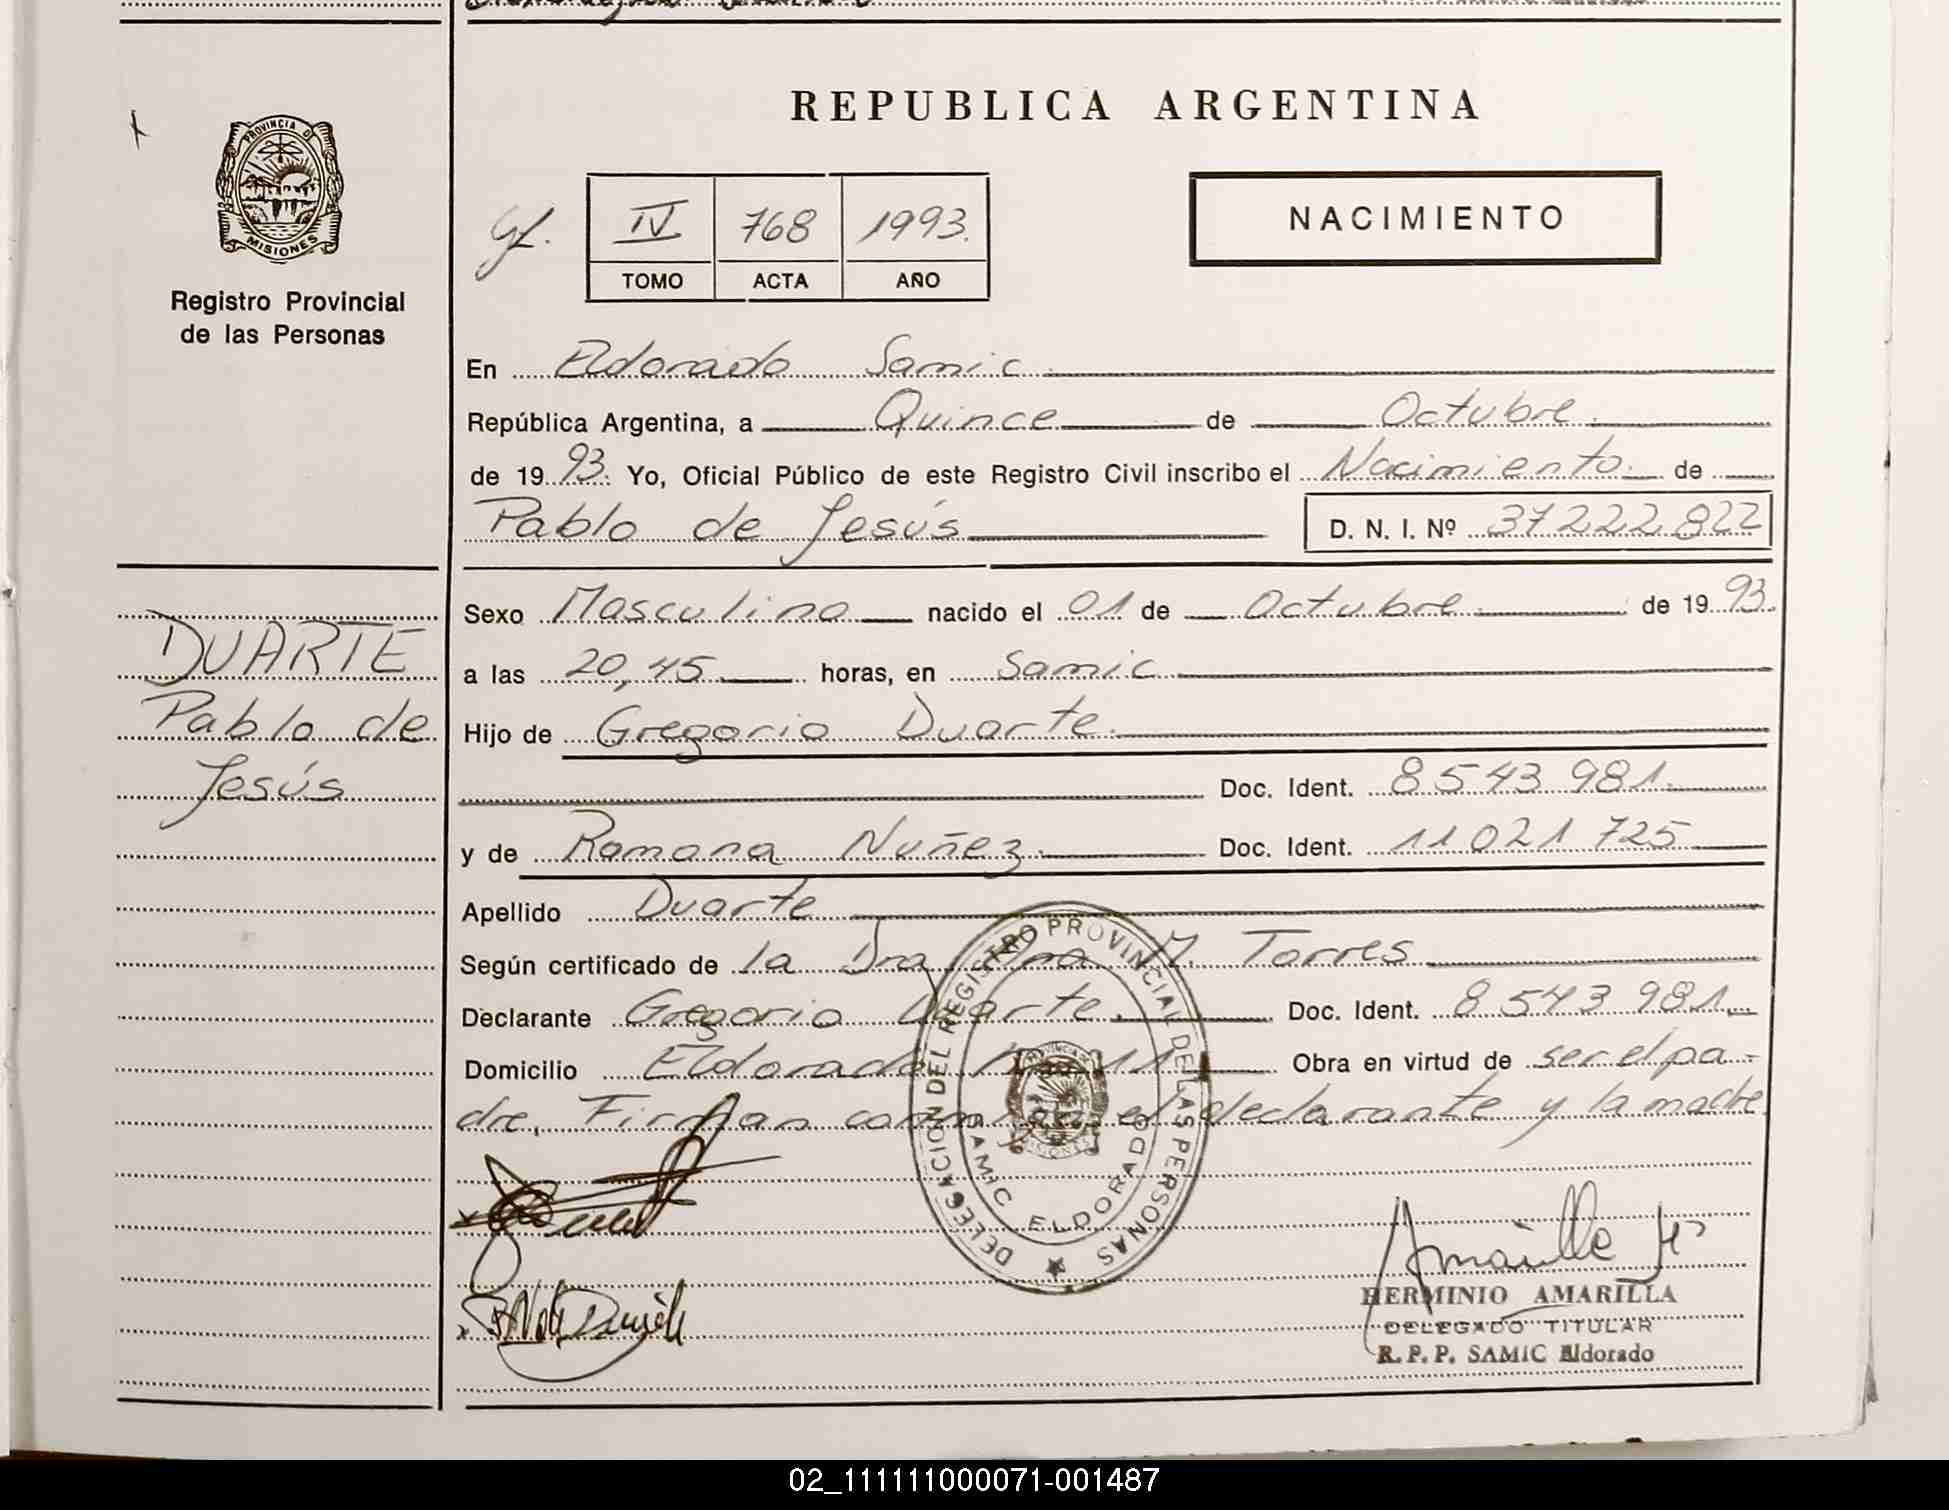 REPUBLICA ARGENTINA
PROVINCIA DE
MISIONES
Registro Provincial
de las Personas
IV 768 1993.
TOMO ACTA AÑO
NACIMIENTO
En Eldorado Samic
República Argentina, a Quince de Octubre.
de 1993. Yo, Oficial Público de este Registro Civil inscribo el Nacimiento. de
Pablo de Jesús D. N. I. Nº 37.222.822
DUARTE
Pablo de
Jesús
Sexo Masculino nacido el 01 de Octubre de 1993.
a las 20,45 horas, en Samic
Hijo de Gregorio Duarte.
Doc. Ident. 8543 981.
y de Ramona Nuñez. Doc. Ident. 11 021 725
Apellido Duarte
Según certificado de la Dra. M. Torres
Declarante Gregorio Duarte. Doc. Ident. 8543 981.
Domicilio Eldorado Obra en virtud de ser el pa-
dre. Firman el declarante y la madre
DELEGACION DEL REGISTRO PROVINCIAL DE LAS PERSONAS
SAMIC ELDORADO
HERMINIO AMARILLA
DELEGADO TITULAR
R. P. P. SAMIC Eldorado
02_111111000071-001487